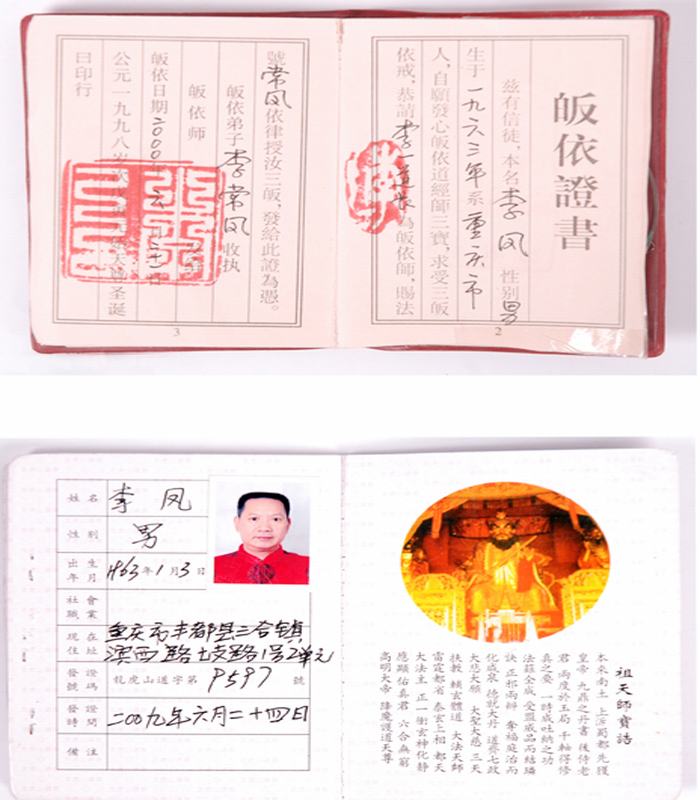 皈依證書
兹有信徒，本名李凤 性别男
生于一九六三年系重庆市
人，自願發心皈依道經師三寶，求受三皈
依戒，恭請李一道长為皈依師，賜法
2
號常凤依律授汝三皈，發給此證為憑。
皈依弟子李常凤收执
皈依师
皈依日期二000年六月
公元一九九八岁次天师圣诞
日印行
3
姓名 李凤
性别 男
出生年月 1963年1月3日
社會職業
現在住址 重庆市丰都县三合镇
滨西路七支路1号2单元
發證號碼 龍虎山道字第P597號
發證時間 二00九年六月二十四日
備注
祖天師寶誥
本來南土 上泝蜀都 先獲
皇帝 九鼎之丹書 後侍老
君 兩度於玉局 千軸得修
真之要 一時成吐納之功
法籙全成 受盟威品而結璘
訣 正邪兩辯 奪福庭治而
化鹹泉 德就大丹 道齊七政
大悲大願 大聖大慈 三天
扶教 輔玄體道 大法天師
雷霆都省 泰玄上相 都天
大法主 正一衝玄神化静
應顯佑真君 六合無窮
高明大帝 降魔護道天尊